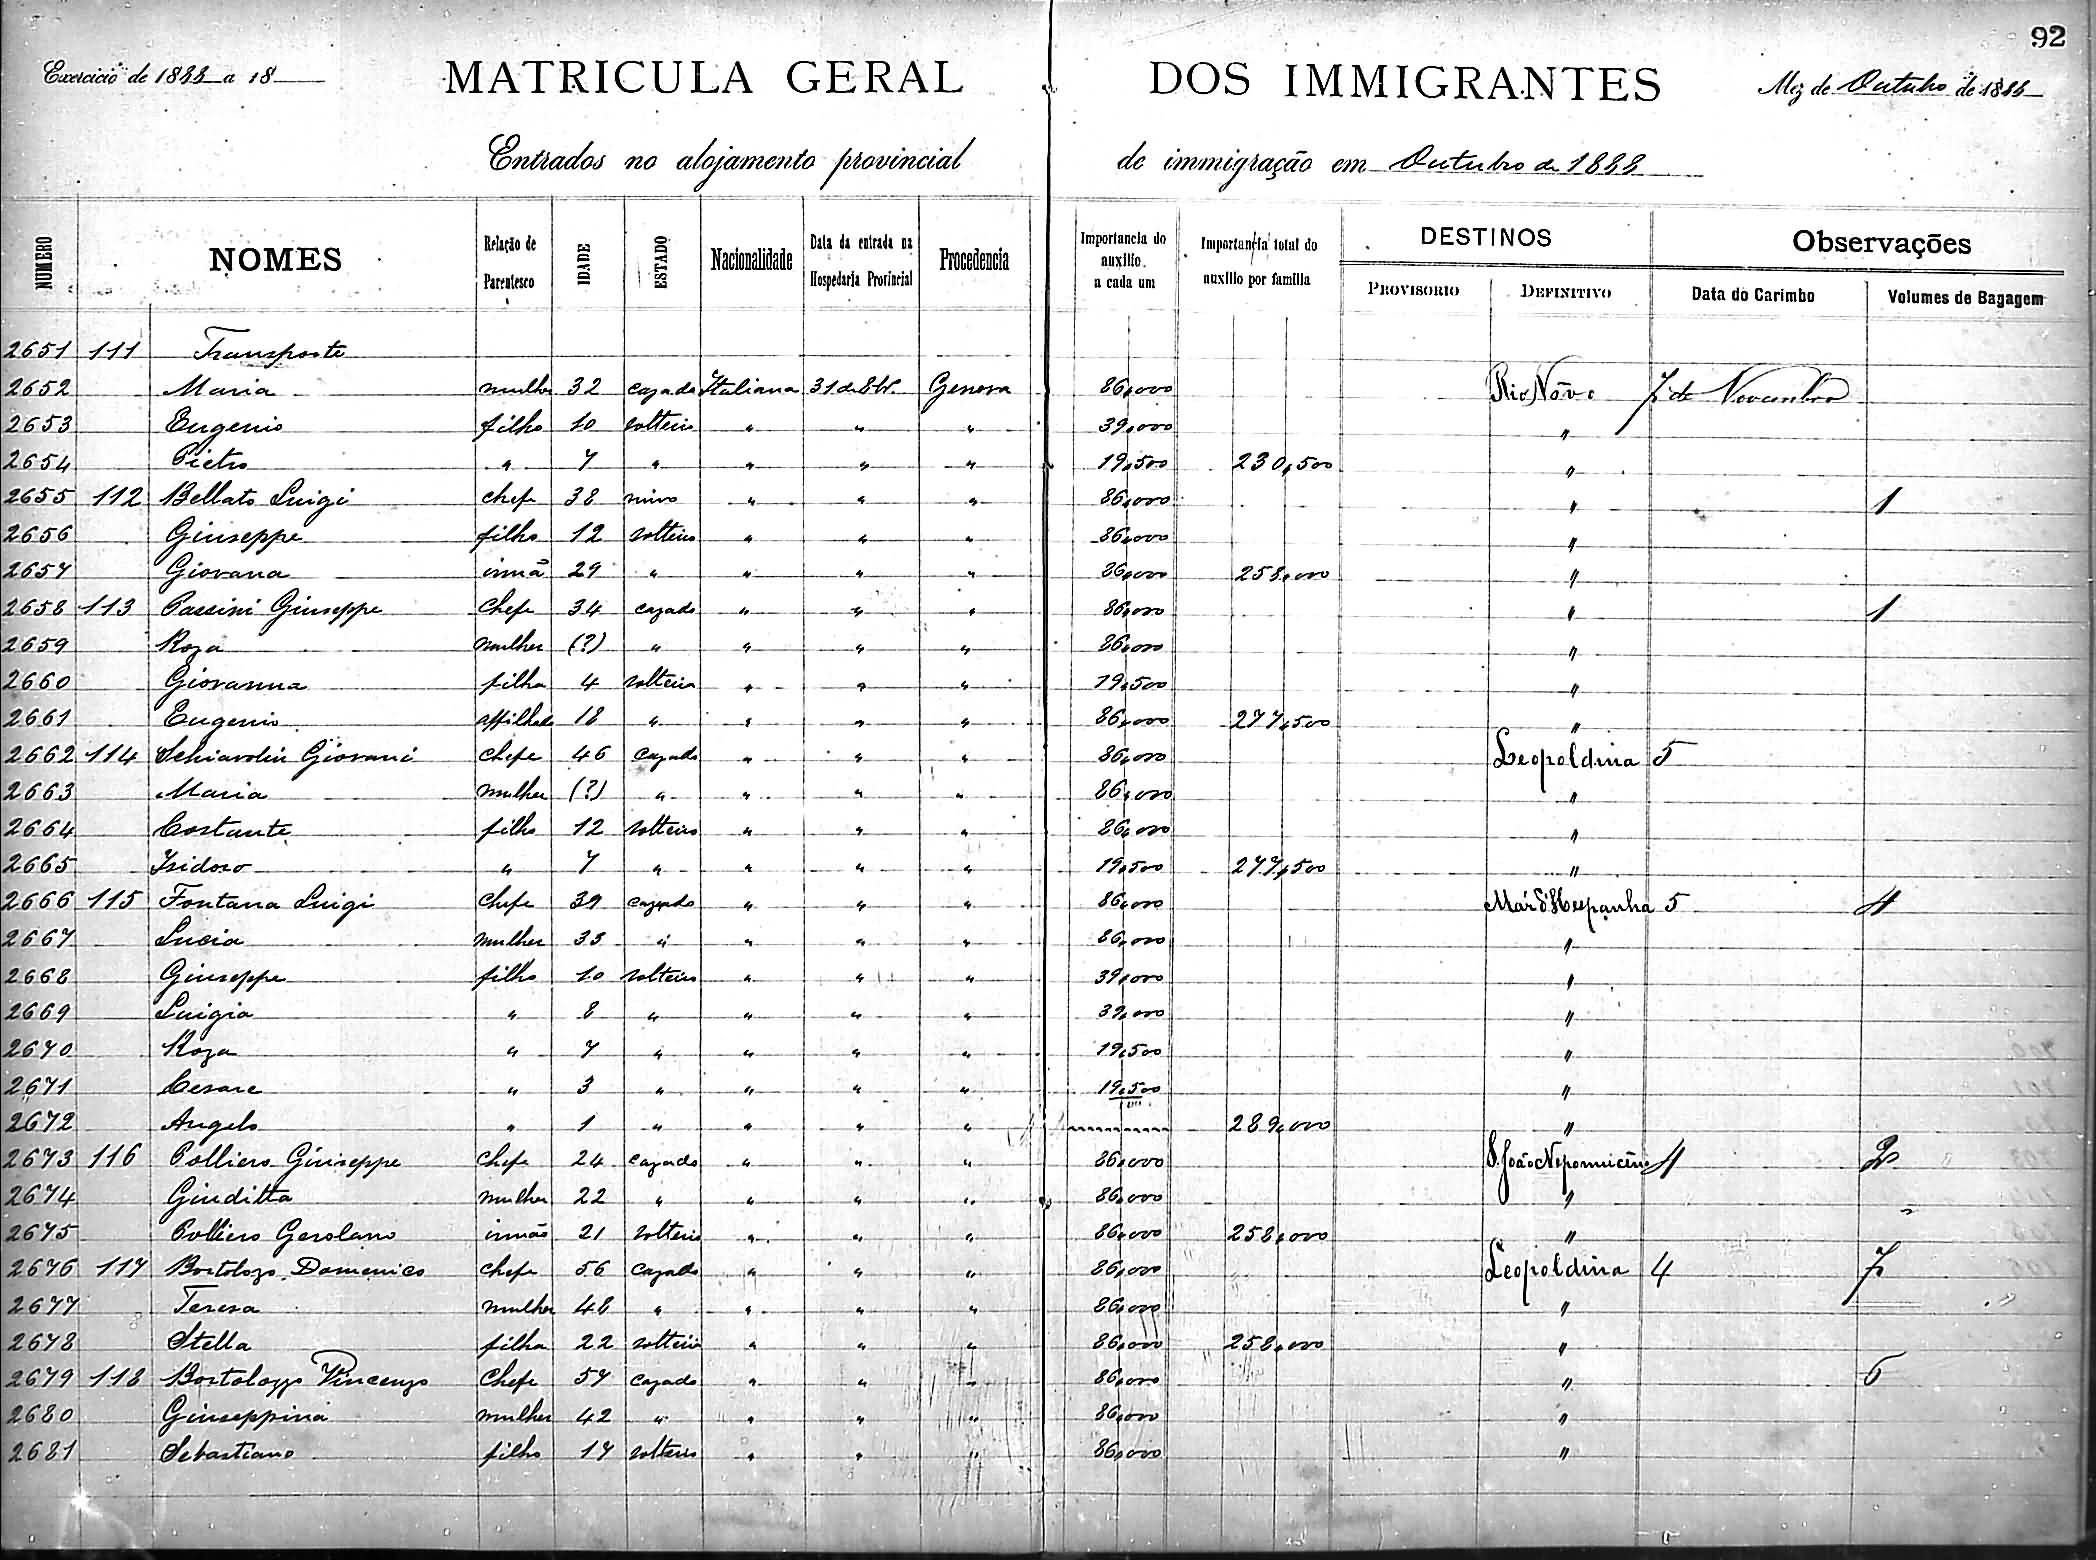 92
Exercicio de 1888 a 18
MATRICULA GERAL DOS IMMIGRANTES
Mez de Outubro de 1888
Entrados no alojamento provincial de immigração em Outubro de 1888
NUMERO NOMES Relação de Parentesco IDADE ESTADO Nacionalidade Data da entrada na Hospedaria Provincial Procedencia Importancia do auxilio a cada um Importancia total do auxilio por familia DESTINOS PROVISORIO DEFINITIVO Observações Data do Carimbo Volumes de Bagagem
2651 111 Transporte
2652 Maria mulher 32 cazada Italiana 31 de 8br. Genova 86,000 Rio Nôvo 7 de Novembro
2653 Eugenio filho 10 solteiro " " " 39,000 "
2654 Pietro " 7 " " " " 19,500 230,500 "
2655 112 Bellato Luigi chefe 38 viuvo " " " 86,000 " 1
2656 Giuseppe filho 12 solteiro " " " 86,000 "
2657 Giovana irmã 29 " " " " 86,000 258,000 "
2658 113 Passini Giuseppe Chefe 34 cazado " " " 86,000 " 1
2659 Roza mulher (?) " " " " 86,000 "
2660 Giovanna filha 4 solteira " " " 19,500 "
2661 Eugenio affilhado 18 " " " " 86,000 277,500 "
2662 114 Schiavolin Giovani chefe 46 cazado " " " 86,000 Leopoldina 5
2663 Maria mulher (?) " " " " 86,000 "
2664 Costante filho 12 solteiro " " " 86,000 "
2665 Isidoro " 7 " " " " 19,500 277,500 "
2666 115 Fontana Luigi Chefe 39 cazado " " " 86,000 Mar d'Hespanha 5 4
2667 Lucia mulher 35 " " " " 86,000 "
2668 Giuseppe filho 10 solteiro " " " 39,000 "
2669 Luigia " 8 " " " " 39,000 "
2670 Roza " 7 " " " " 19,500 "
2671 Cesare " 3 " " " " 19,500 "
2672 Angelo " 1 " " " " 289,000 "
2673 116 Polliero Giuseppe Chefe 24 cazado " " " 86,000 S. João Nepomuceno 4 2
2674 Giuditta mulher 22 " " " " 86,000 "
2675 Polliero Gerolano irmão 21 solteiro " " " 86,000 258,000 "
2676 117 Bortolozo Domenico chefe 56 cazado " " " 86,000 Leopoldina 4 7
2677 Teresa mulher 48 " " " " 86,000 "
2678 Stella filha 22 solteira " " " 86,000 258,000 "
2679 118 Bortolozzo Vincenzo Chefe 57 cazado " " " 86,000 " 6
2680 Giuseppina mulher 42 " " " " 86,000 "
2681 Sebastiano filho 17 solteiro " " " 86,000 "